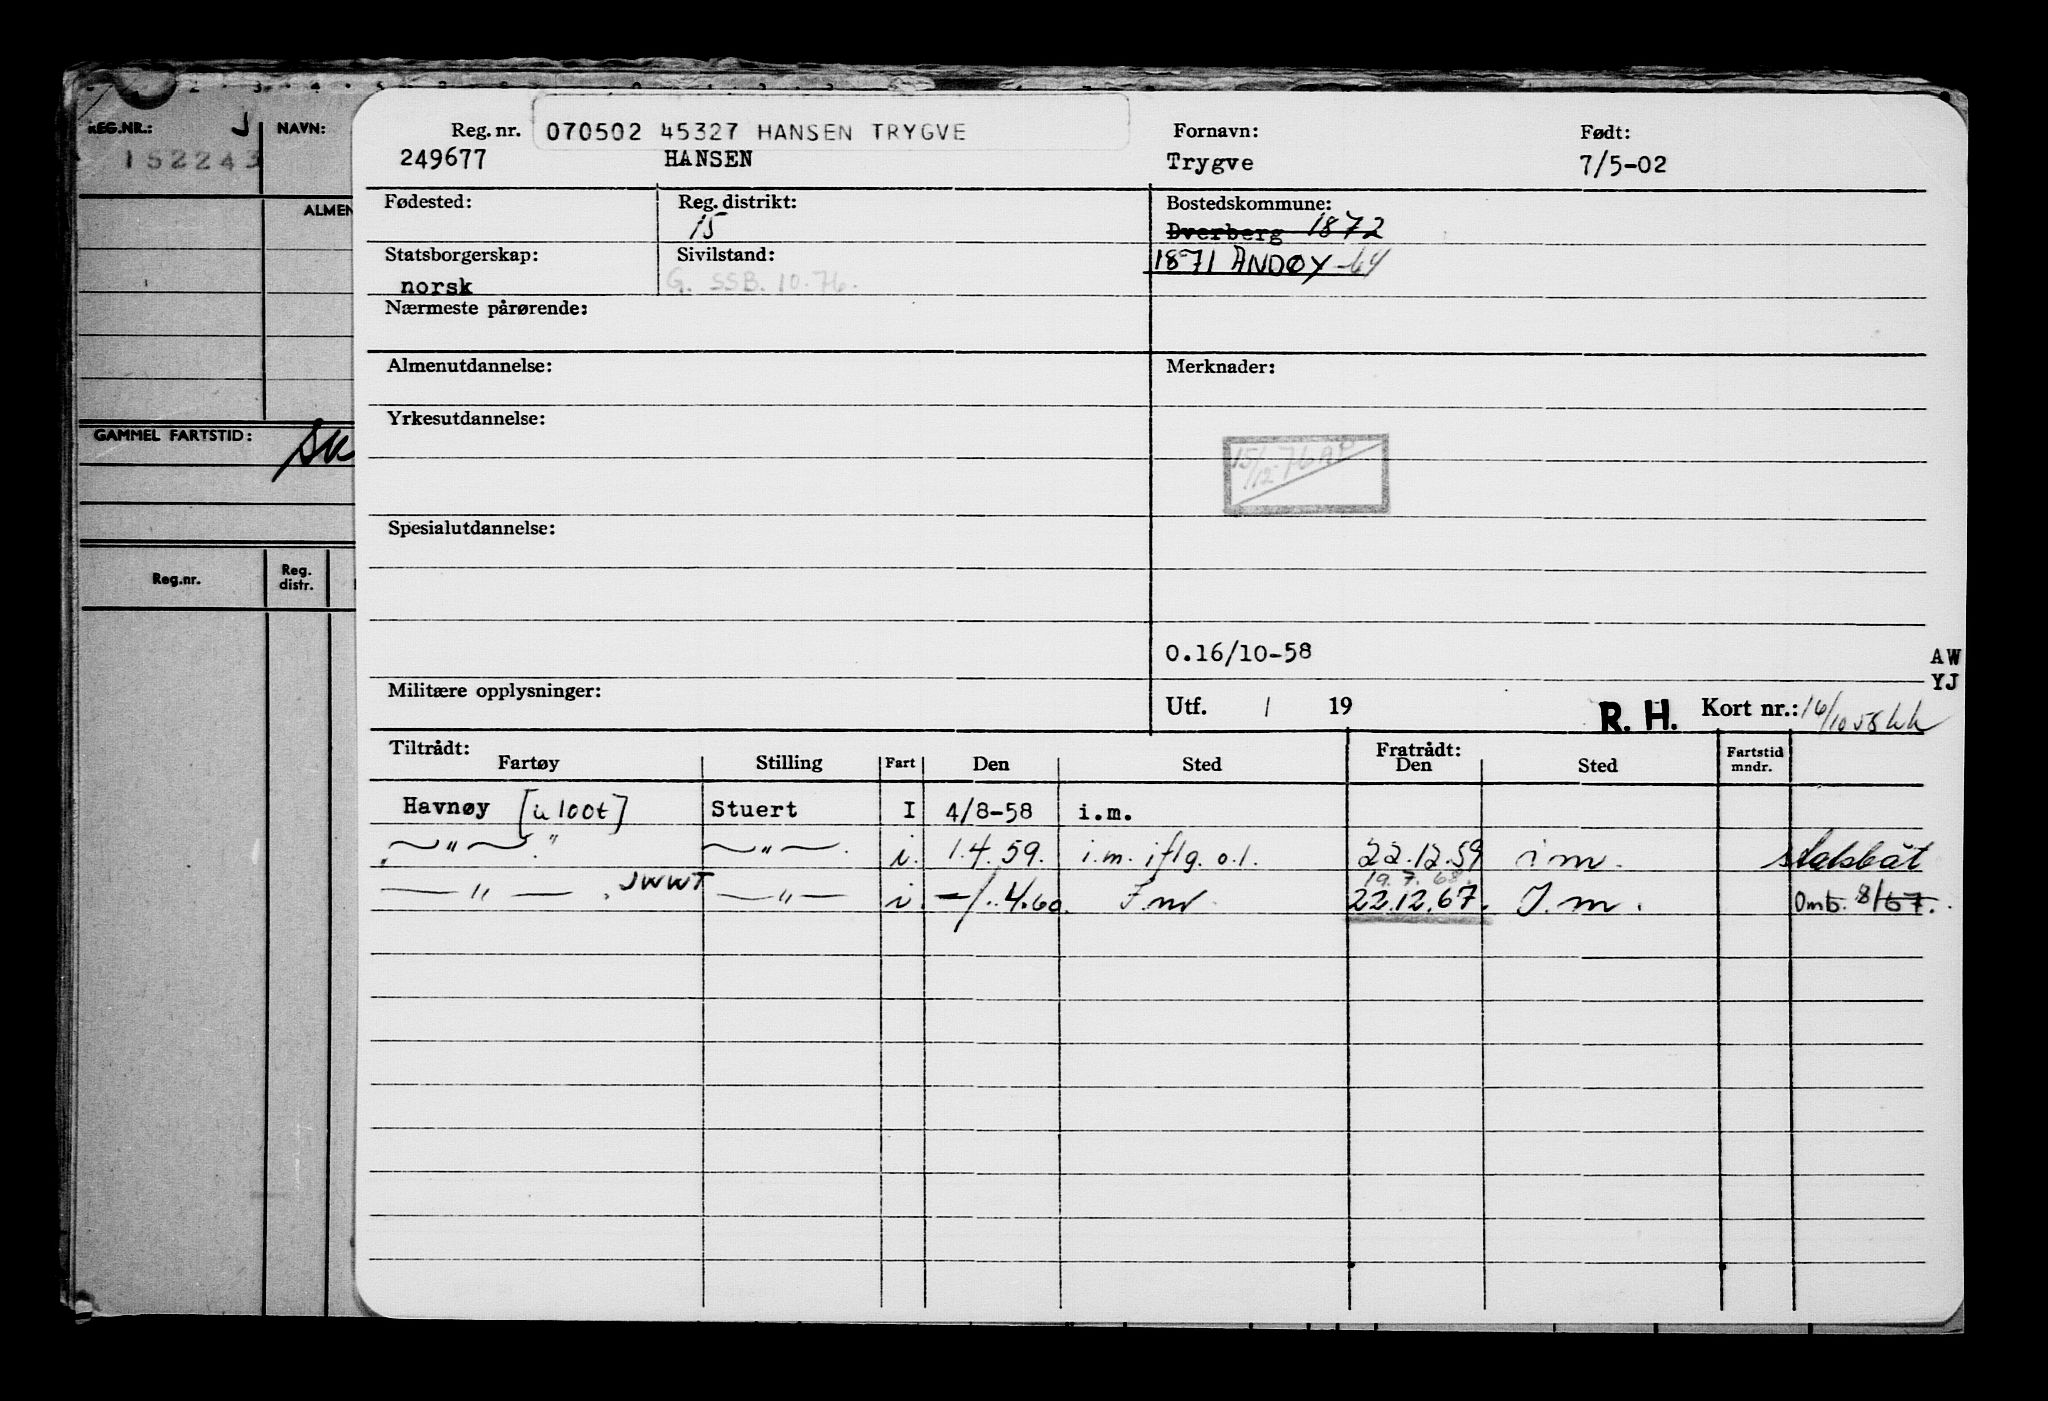 REG.NR.: J NAVN:
152243
ALMEN
GAMMEL FARTSTID:
Reg.nr. Reg. distr.
Reg. nr. 070502 45327 HANSEN TRYGVE Fornavn: Født:
249677 HANSEN Trygve 7/5-02
Fødested: Reg. distrikt: Bostedskommune:
15 Dverberg 1872
Statsborgerskap: Sivilstand: 1871 ANDØY -64
norsk G. SSB. 10.76.
Nærmeste pårørende:
Almenutdannelse: Merknader:
Yrkesutdannelse:
15/12-76 AP
Spesialutdannelse:
0.16/10-58 AW
YJ
Militære opplysninger: Utf. / 19 R. H. Kort nr.: 16/10 58
Tiltrådt: Fratrådt:
Fartøy Stilling Fart Den Sted Den Sted Fartstid mndr.
Havnøy [u 100t] Stuert I 4/8-58 i.m.
" " " i. 1.4.59. i.m. iflg. o.l. 22.12.59 i m. statsbåt
19.7.68.
" JWWT " i -/.4.60. I.m 22.12.67. I.m. Omb. 8/67.